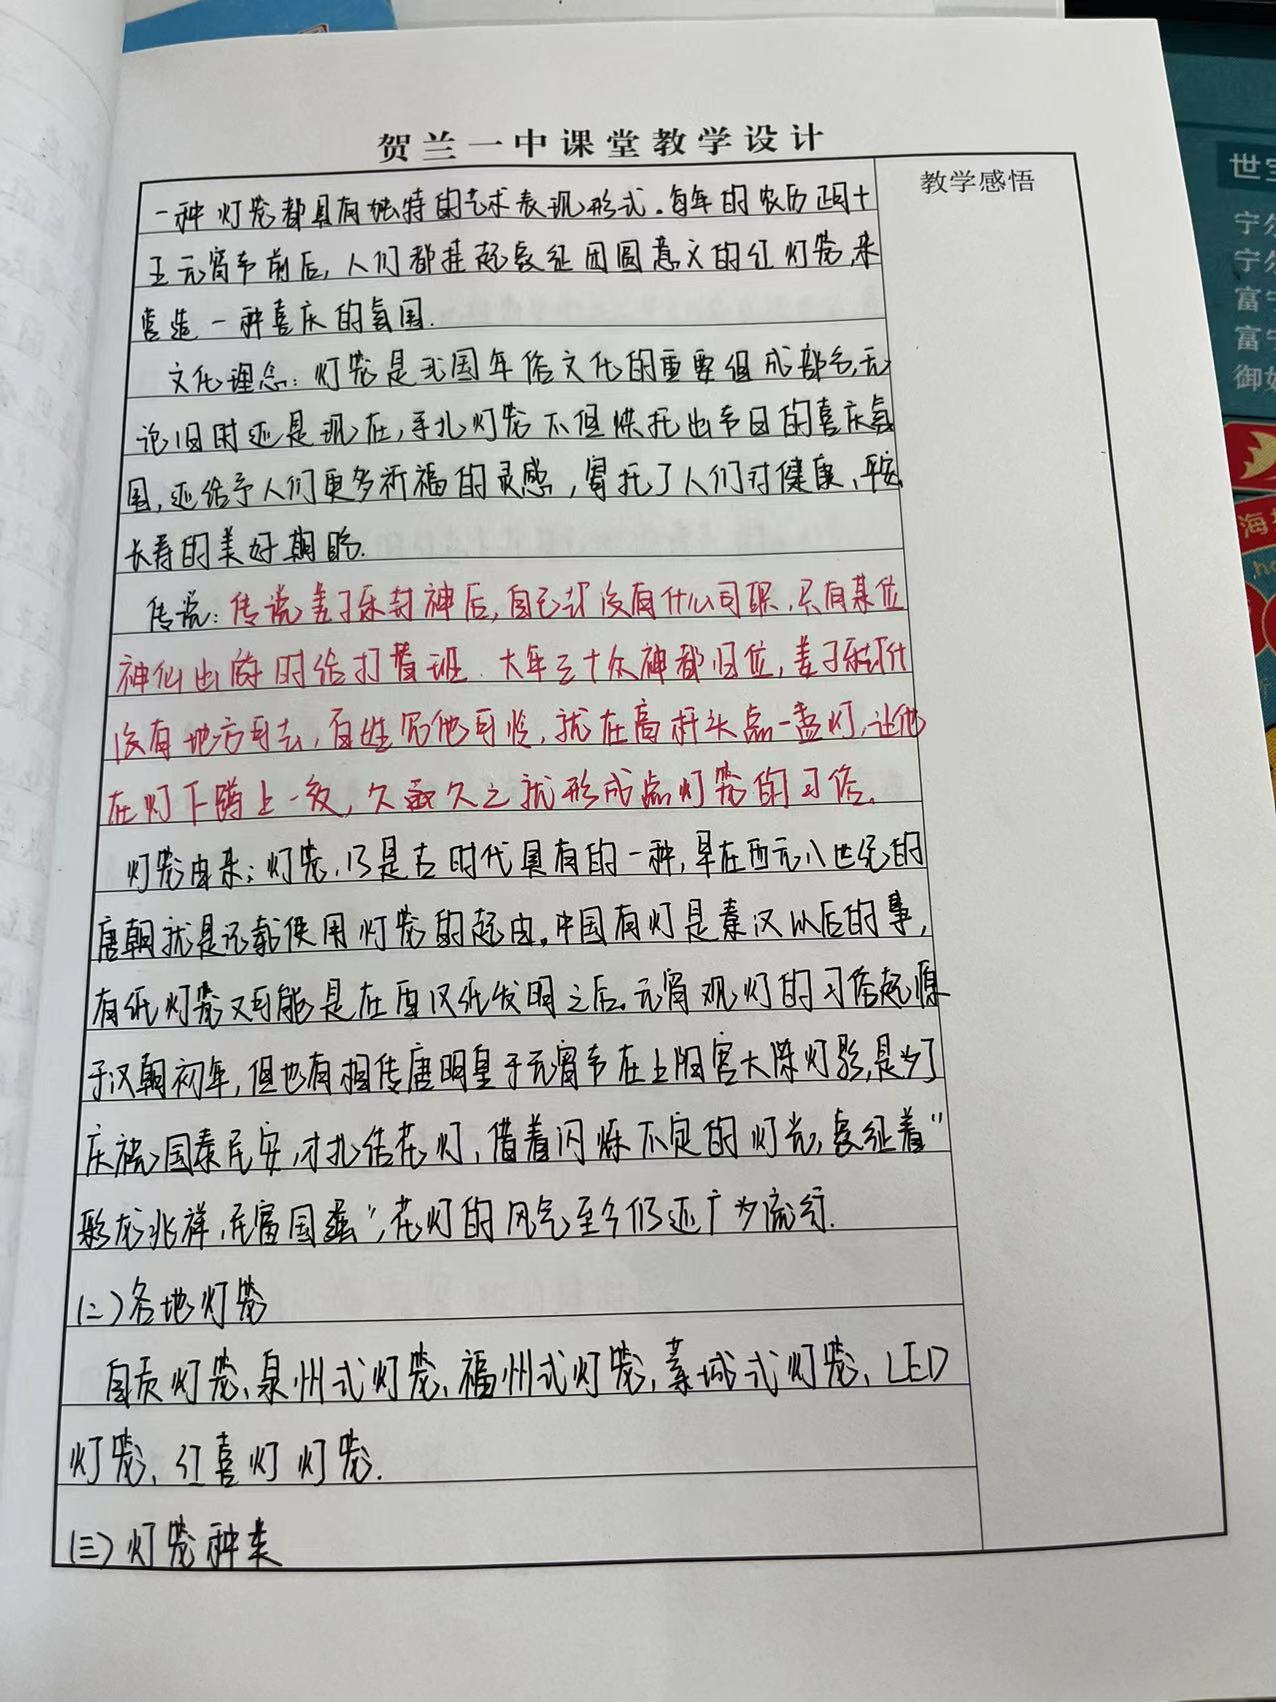 贺兰一中课堂教学设计
教学感悟
一种灯笼都具有独特的艺术表现形式。每年的农历正月十
五元宵节前后,人们都挂起象征团圆意义的红灯笼,来
营造一种喜庆的氛围.
文化理念:灯笼是我国年俗文化的重要组成部分,无
论旧时还是现在,手扎灯笼不但烘托出节日的喜庆氛
围,还给予人们更多祈福的灵感,寄托了人们对健康、平安
长寿的美好期盼.
传说:传说姜子牙封神后,自己却没有什么司职,只有某位
神仙出游时给打替班.大年三十众神都归位,姜子牙却什
没有地方可去,百姓见他可怜,就在高杆头点一盏灯,让他
在灯下蹲上一夜,久而久之就形成点灯笼的习俗.
灯笼由来:灯笼,乃是古时代具有的一种,早在西元八世纪的
唐朝就是记载使用灯笼的起由。中国有灯是秦汉以后的事,
有纸灯笼又可能是在西汉纸发明之后。元宵观灯的习俗起源
于汉朝初年,但也有相传唐明皇于元宵节在上阳宫大陈灯影,是为了
庆祝国泰民安,才扎结花灯,借着闪烁不定的灯光,象征着“
彩龙兆祥,民富国强”,花灯的风气至今仍还广为流行.
(二)各地灯笼
自贡灯笼、泉州式灯笼、福州式灯笼,藁城式灯笼、LED
灯笼、红喜灯灯笼.
(三)灯笼种类
世宝
宁
宁
富宁
富宁
御
海